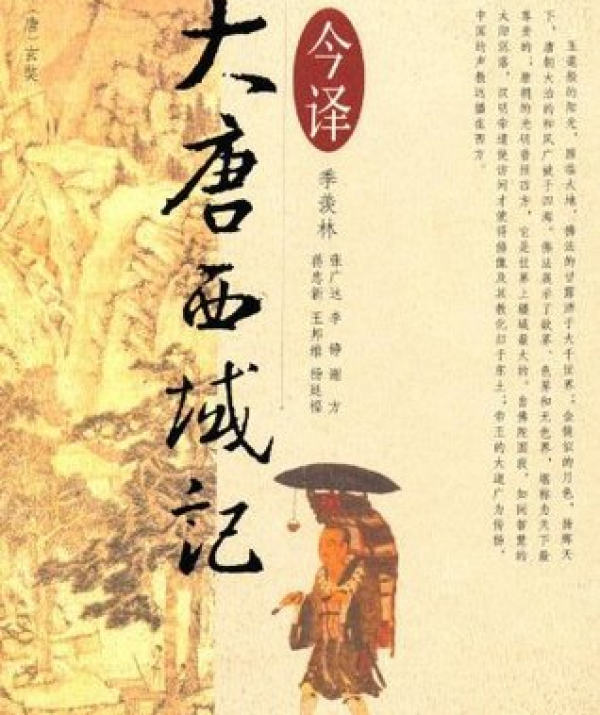 大唐西域記
（唐）玄奘
今译
季羡林
张广达 李铮 谢方
蒋忠新 王邦维 杨廷福
玉毫般的阳光，照临大地，佛法的甘露洒于大千世界；金镜似的月色，扬辉天
下，唐朝大治的和风广被于四海。佛法展示了欲界、色界和无色界，堪称为天下最
尊贵的；唐朝的光明普照四方，它是世界上疆域最大的。自佛陀圆寂，如同智慧的
太阳沉落，汉明帝遣使访问才使得佛像及其教化归于东土；帝王的大道广为传扬，
中国的声教远播在西方。